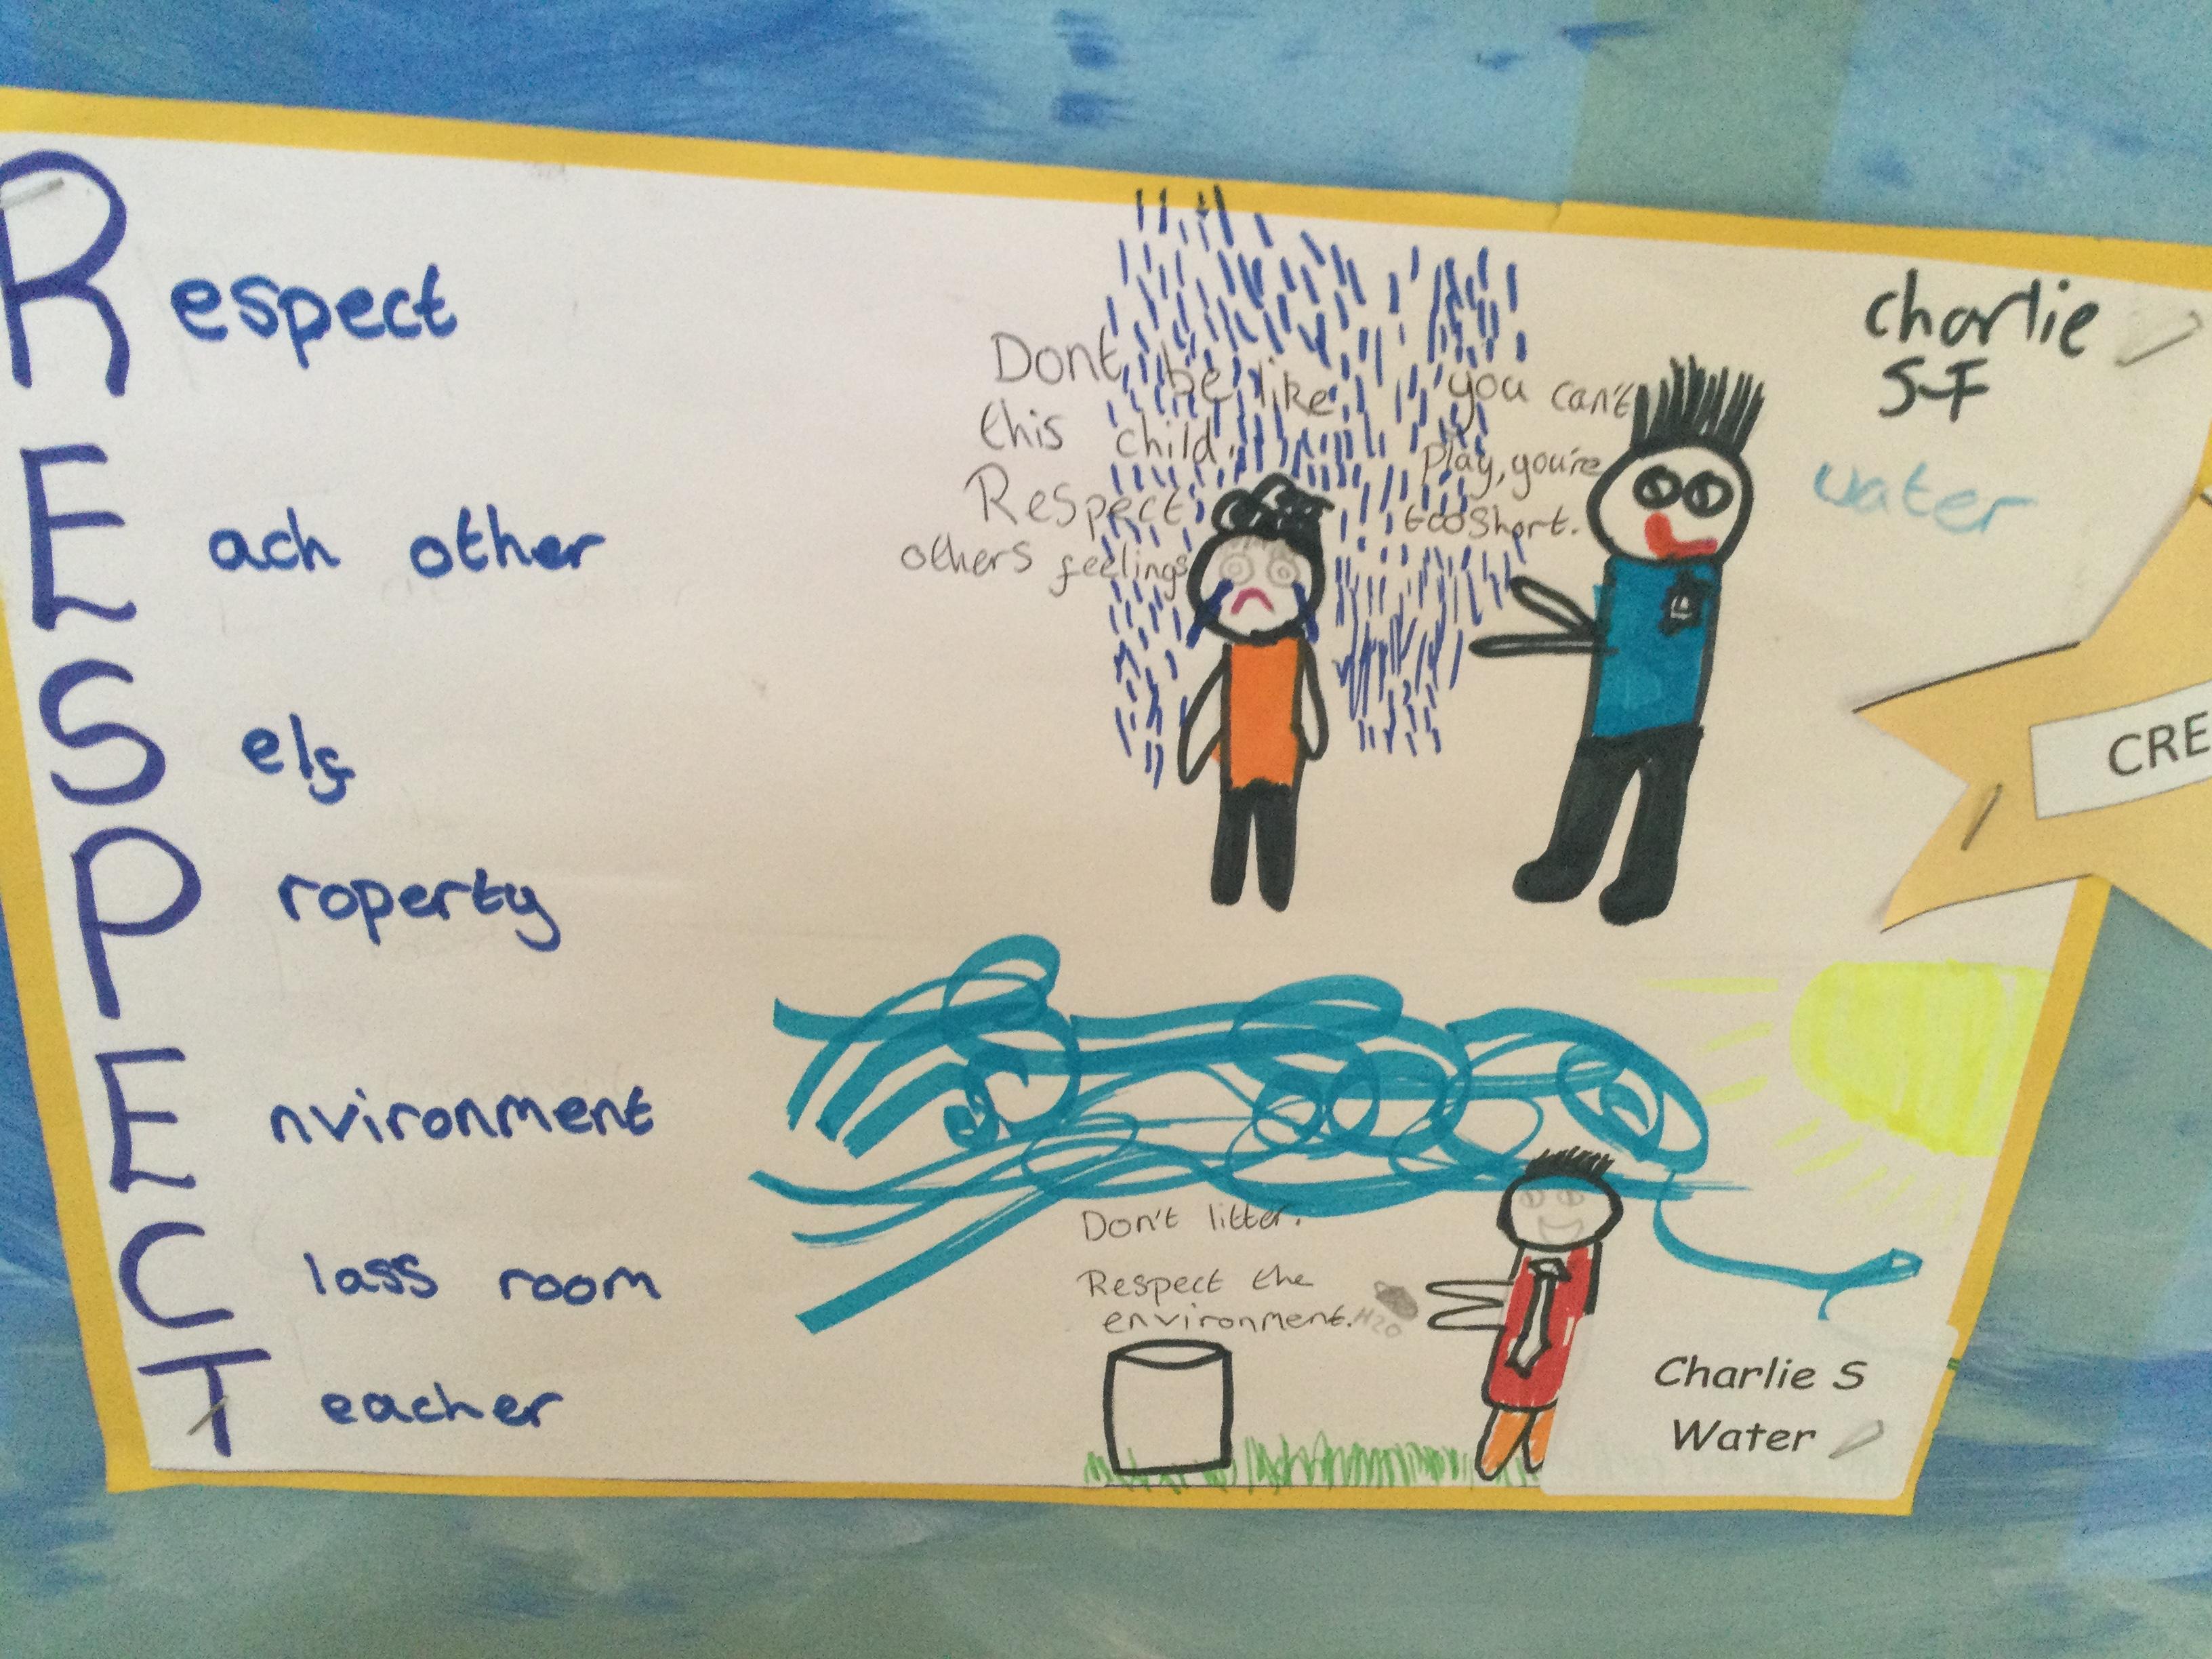 Respect
Each other
Self
Property
Environment
Class room
Teacher
Dont be like
this child.
Respect
others feelings
you can't
play, you're
too short.
charlie
S-F
water
CRE
Don't litter.
Respect the
environment.
H2O
Charlie S
Water